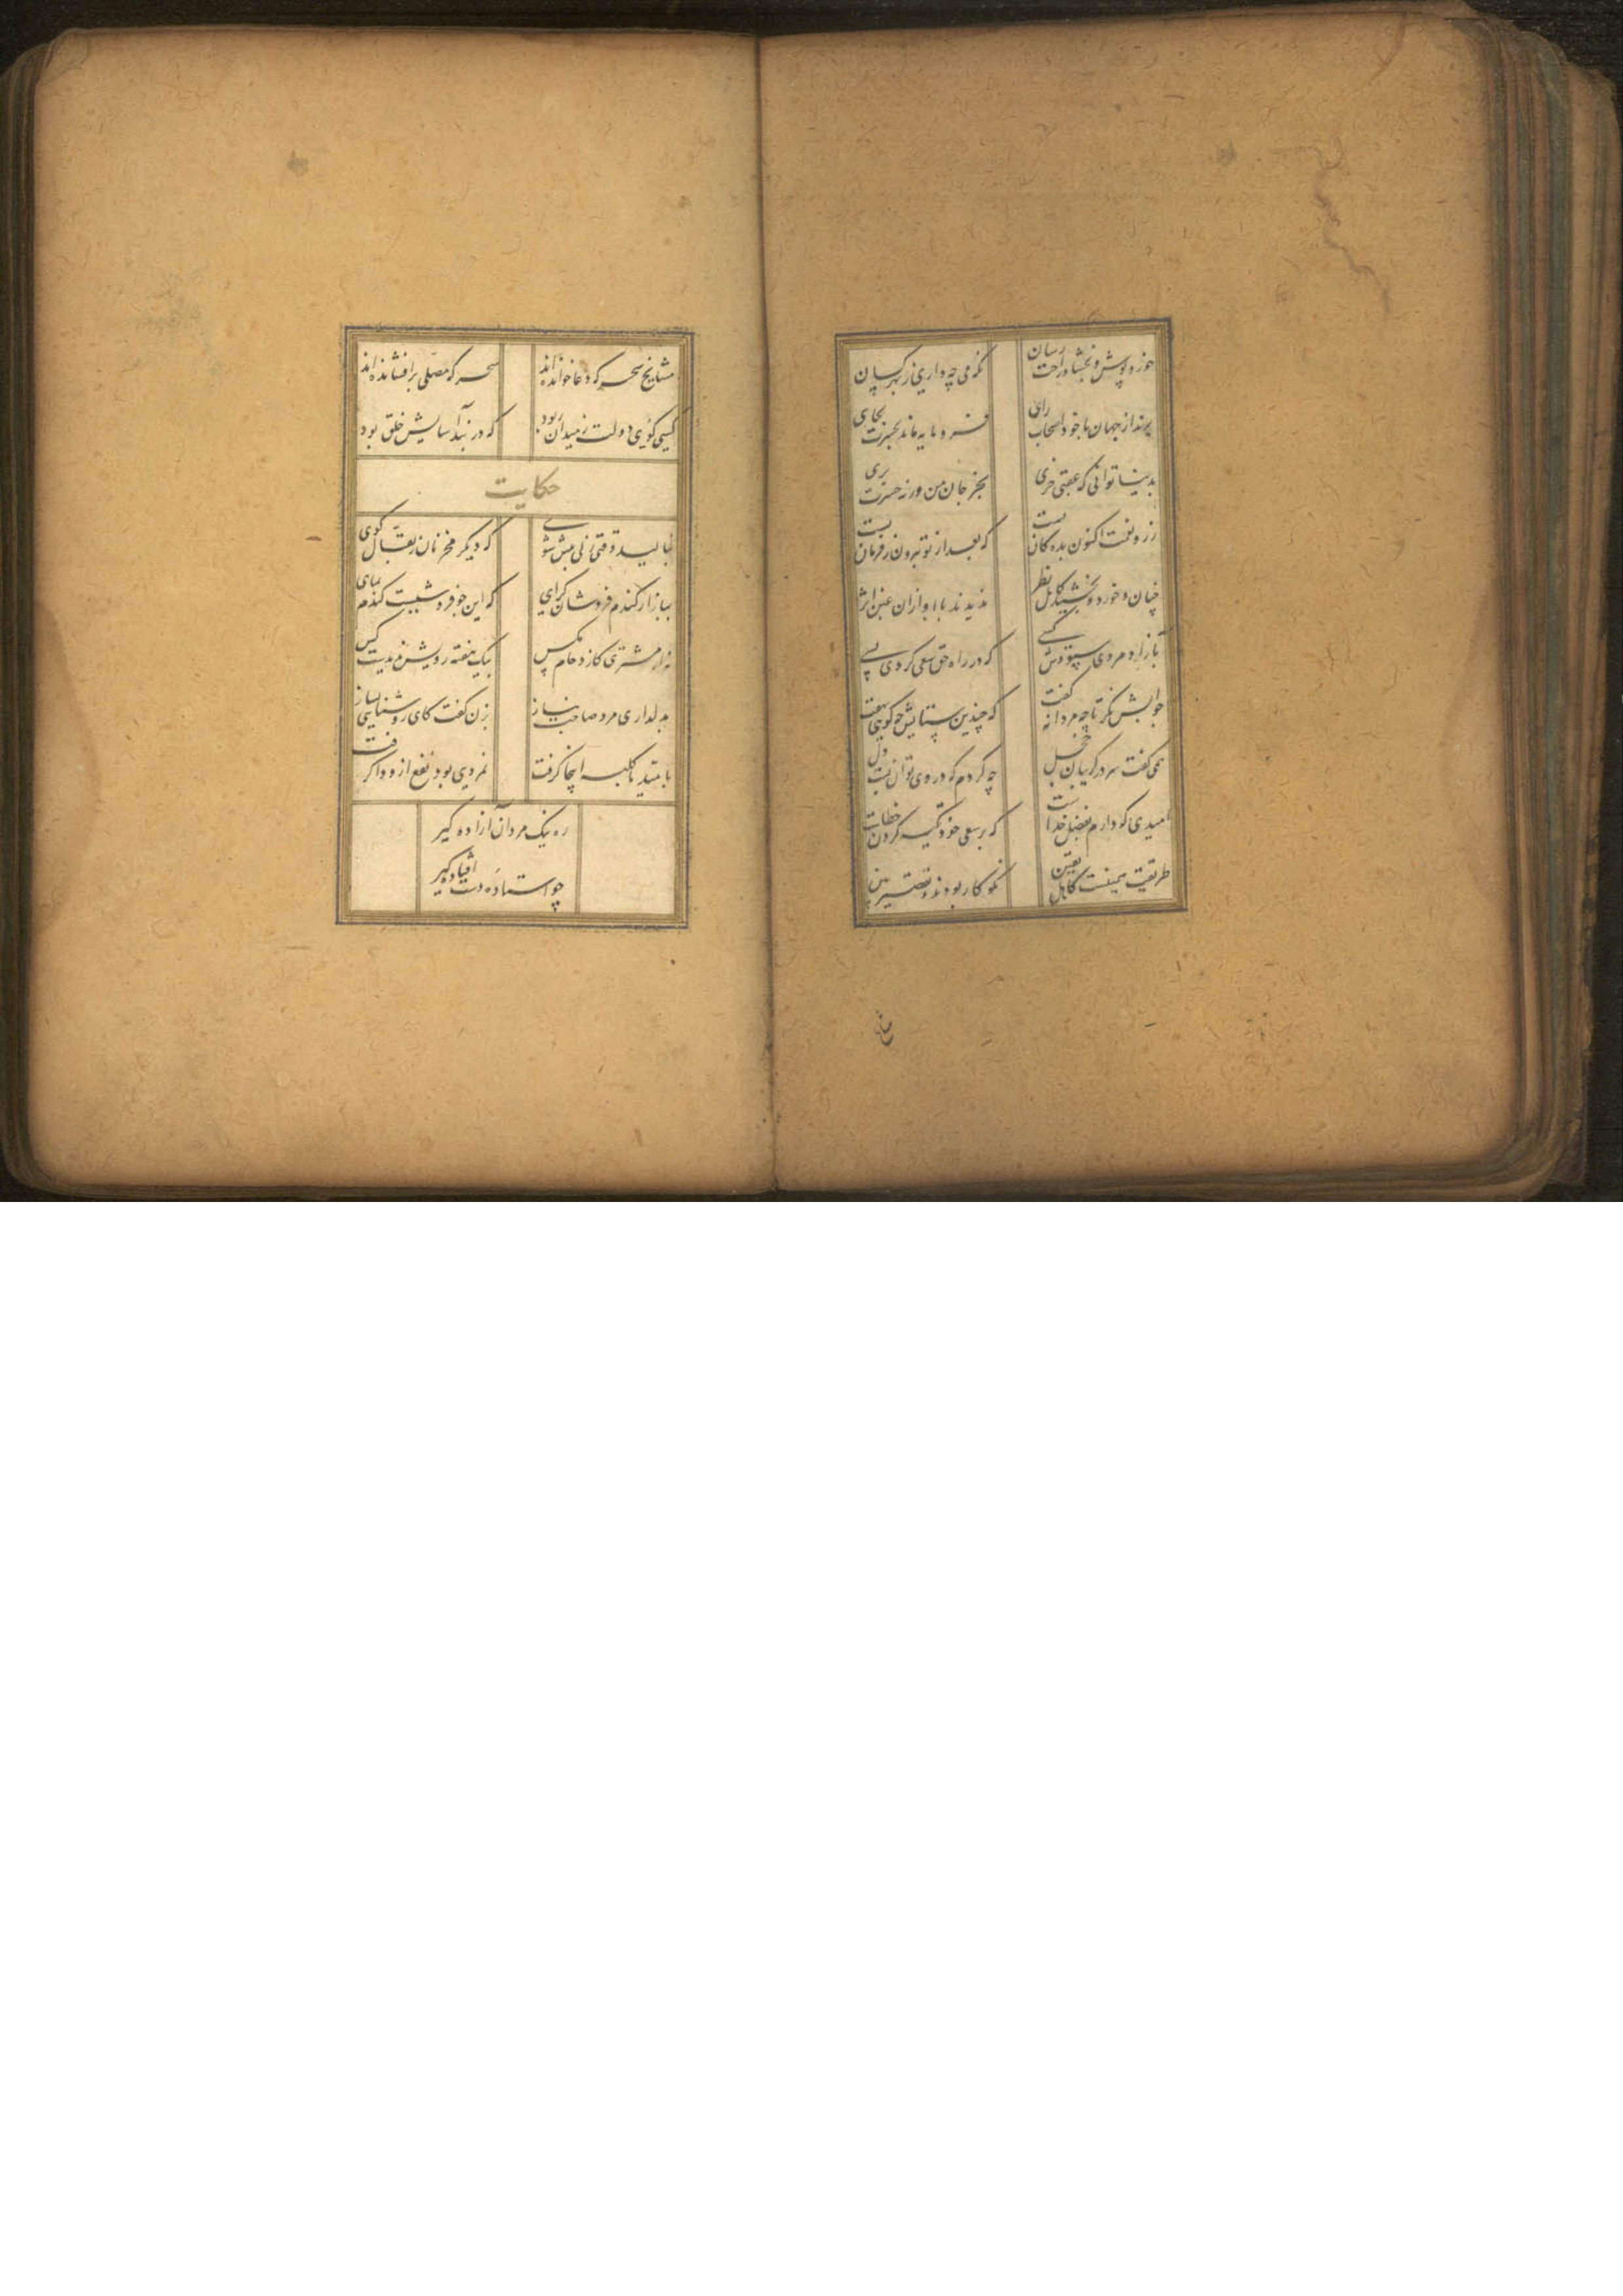 خور و پوش و بخشا و راحت رسان
نگه می چه داری ز بهر کسان
برند از جهان با خود اصحاب رای
فرو مایه ماند بحسرت بجای
بدنیا توانی که عقبی خری
بخر جان من ورنه حسرت بری
زر و نعمت اکنون بده کان تست
که بعد از تو بیرون ز فرمان تست
چنان خورد و بخشید کاهل نظر
ندیدند با او ازان عین اثر
بآزاد مردی ستودش کسی
که در راه حق سعی کردی بسی
جوابش نگر تا چه مردانه گفت
که چندین ستایش چه گویی بهفت
همی گفت سر در گریبان خجل
چه کردم که در وی توان بست دل
امیدی که دارم بفضل خداست
که بر سعی خود تکیه کردن خطاست
طریقت همینست کاهل یقین
نکو کار بودند و تقصیر بین
مشایخ
مشایخ سحرگه دعا خوانده اند
سحرگه مصلی برافشانده اند
کسی گوی دولت ز میدان ربود
که در بند آسایش خلق بود
حکایت
بنالید وقتی زنی پیش شوی
که دیگر مخر نان ز بقال کوی
ببازار گندم فروشان گرای
که این جو فروشیست گندم نمای
نه از مشتری کازدحام مگس
بیک هفته رویش ندیدست کس
بدلداری مرد صاحب نیاز
بزن گفت کای روشنایی بساز
بامید ما کلبه اینجا گرفت
نه مردی بود نفع ازو وا گرفت
ره نیک مردان آزاده گیر
چو استاده دست افتاده گیر